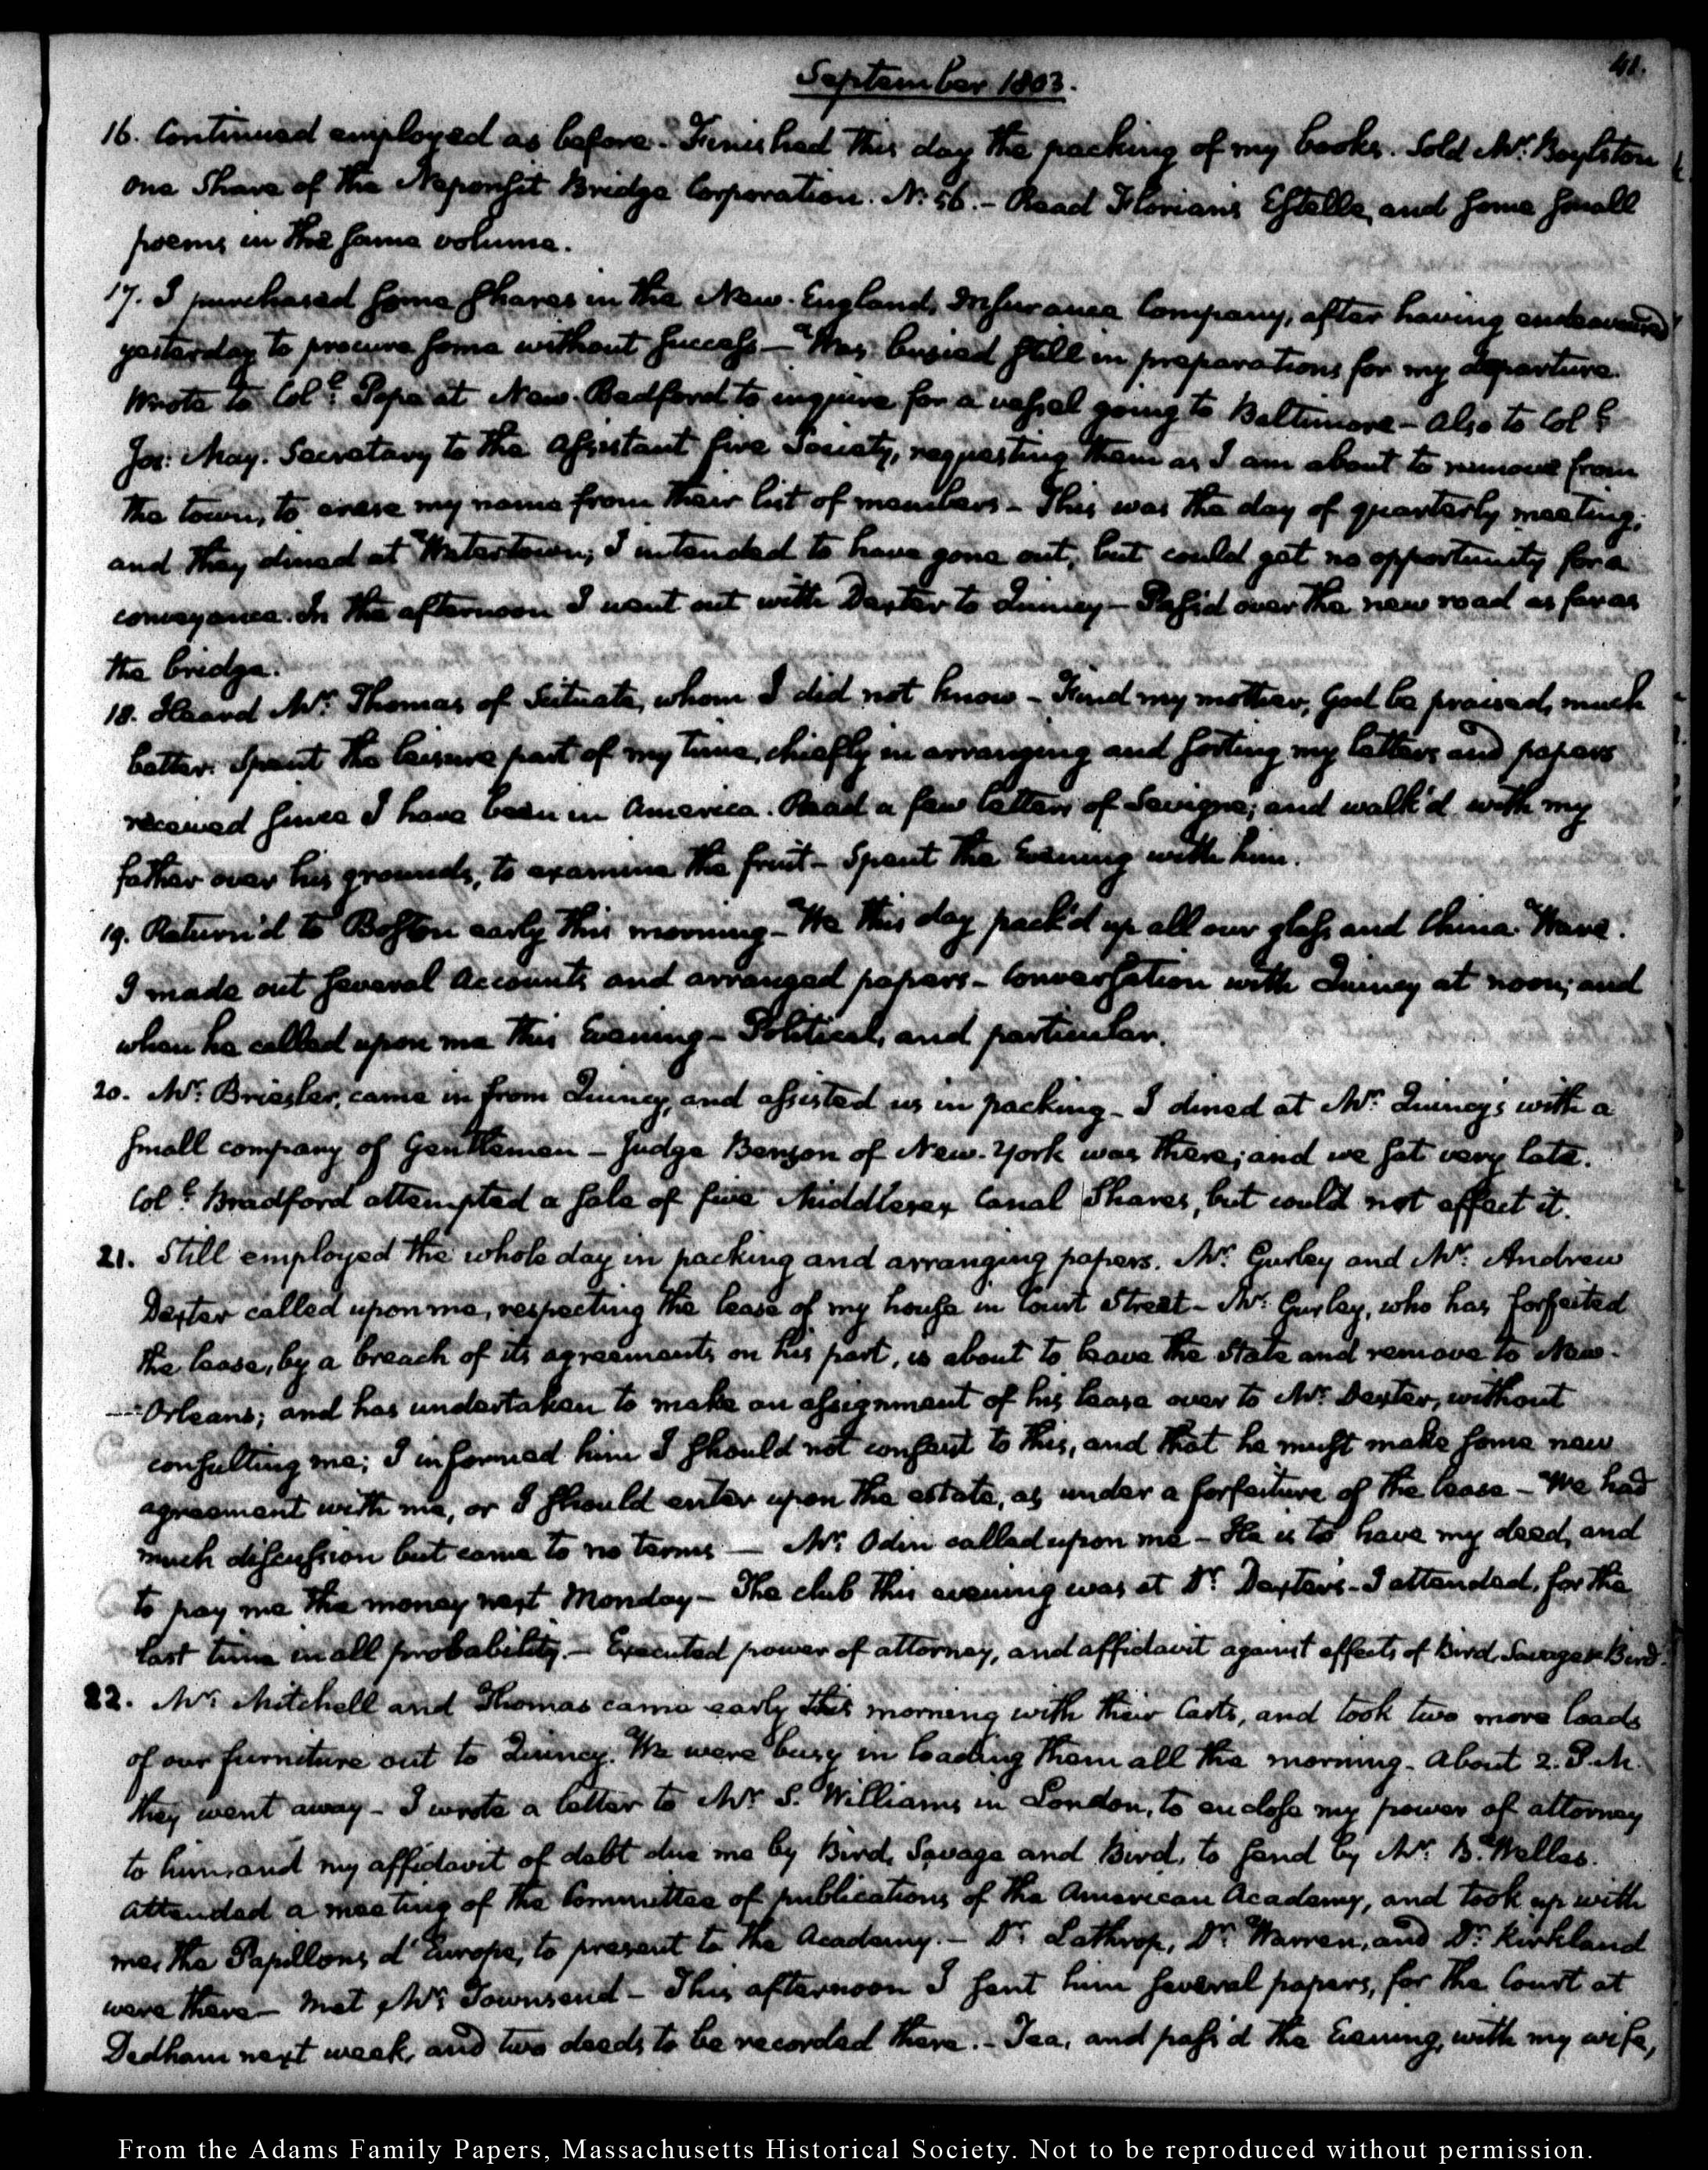 41.
September 1803.
16. Continued employed as before - Finished this day the packing of my books. Sold Mr: Boylston
one Share of the Neponsit Bridge Corporation. N: 56. - Read Florian's Estelle, and some small
poems in the same volume.
17. I purchased some shares in the New-England Insurance Company, after having endeavoured
yesterday to procure some without success - Was busied still in preparations for my departure.
Wrote to Coll: Pope at New-Bedford to inquire for a vessel going to Baltimore - Also to Coll:
Jos: May. Secretary to the Assistant fire Society, requesting them as I am about to remove from
the town, to erase my name from their list of members - This was the day of quarterly meeting;
and they dined at Watertown; I intended to have gone out, but could get no opportunity for a
conveyance. In the afternoon I went out with Dexter to Quincy - Pass'd over the new road as far as
the bridge.
18. Heard Mr: Thomas of Scituate, whom I did not know - Find my mother, God be praised, much
better. Spent the leisure part of my time, chiefly in arranging and sorting my letters and papers
received since I have been in America. Read a few letters of Sevigne; and walk'd with my
father over his grounds, to examine the fruit - Spent the Evening with him.
19. Return'd to Boston early this morning - We this day pack'd up all our glass and China-Ware.
I made out several Accounts and arranged papers - Conversation with Quincy at noon; and
when he called upon me this Evening - Political, and particular.
20. Mr: Briesler, came in from Quincy, and assisted us in packing - I dined at Mr: Quincy's with a
small company of Gentlemen - Judge Benson of New-York was there; and we sat very late.
Coll: Bradford attempted a sale of five Middlesex Canal Shares, but could not effect it.
21. Still employed the whole day in packing and arranging papers. Mr: Gurley and Mr: Andrew
Dexter called upon me, respecting the lease of my house in Court Street - Mr: Gurley, who has forfeited
the lease, by a breach of its agreements on his part, is about to leave the State and remove to New-
-Orleans; and has undertaken to make an assignment of his lease over to Mr: Dexter, without
consulting me; I informed him I should not consent to this, and that he must make some new
agreement with me, or I should enter upon the estate, as under a forfeiture of the lease - We had
much discussion but came to no terms — Mr: Odin called upon me - He is to have my deed, and
to pay me the money next Monday - The club this evening was at Dr: Dexter's - I attended, for the
last time in all probability. - Executed power of attorney, and affidavit against effects of Bird, Savage & Bird.
22. Mr: Mitchell and Thomas came early this morning with their Carts, and took two more loads
of our furniture out to Quincy. We were busy in loading them all the morning. About 2. P.M.
they went away - I wrote a letter to Mr: S. Williams in London, to enclose my power of attorney
to him, and my affidavit of debt due me by Bird, Savage and Bird, to send by Mr: B. Welles.
Attended a meeting of the Committee of publications of the American Academy, and took up with
me, the Papillons d'Europe, to present to the Academy. - Dr: Lathrop, Dr: Warren, and Dr: Kirkland
were there - Met Mr: Townsend - This afternoon I sent him several papers, for the Court at
Dedham next week, and two deeds to be recorded there. - Tea, and pass'd the Evening, with my wife,
From the Adams Family Papers, Massachusetts Historical Society. Not to be reproduced without permission.